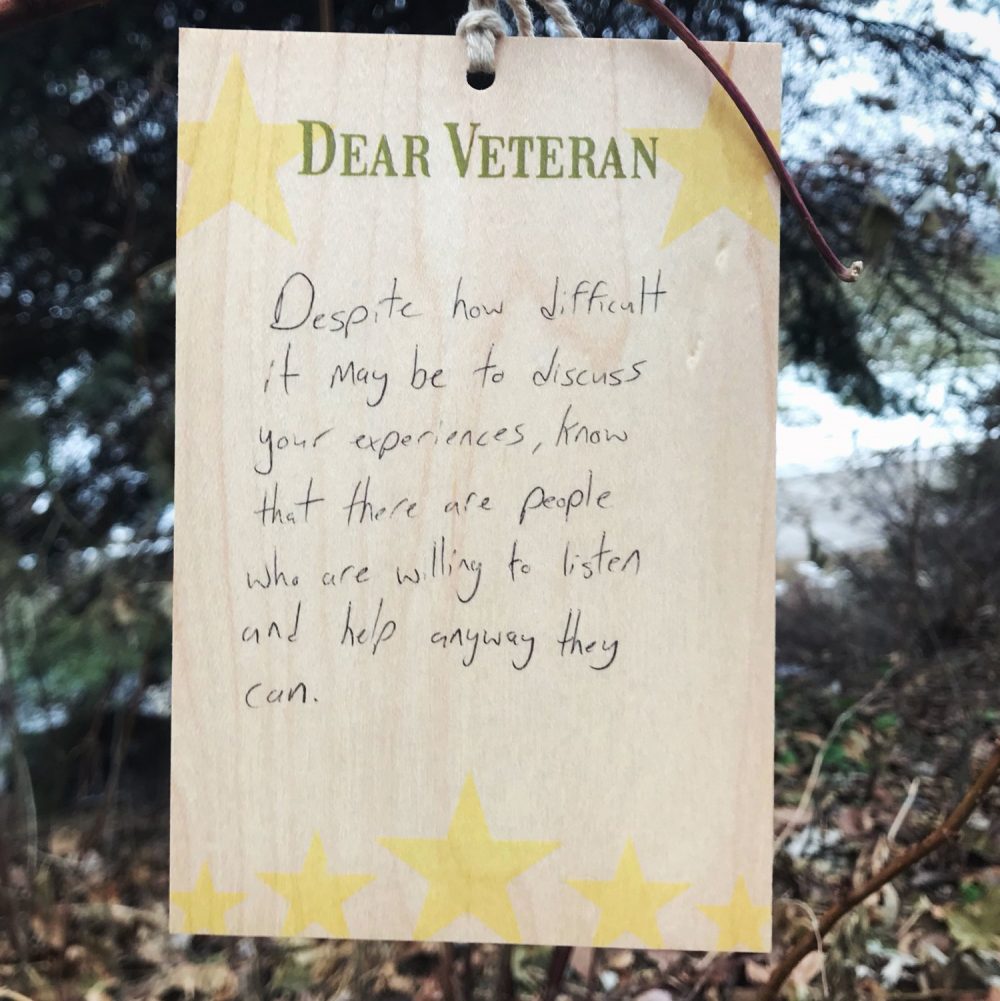 DEAR VETERAN
Despite how difficult
it may be to discuss
your experiences, know
that there are people
who are willing to listen
and help anyway they
can.